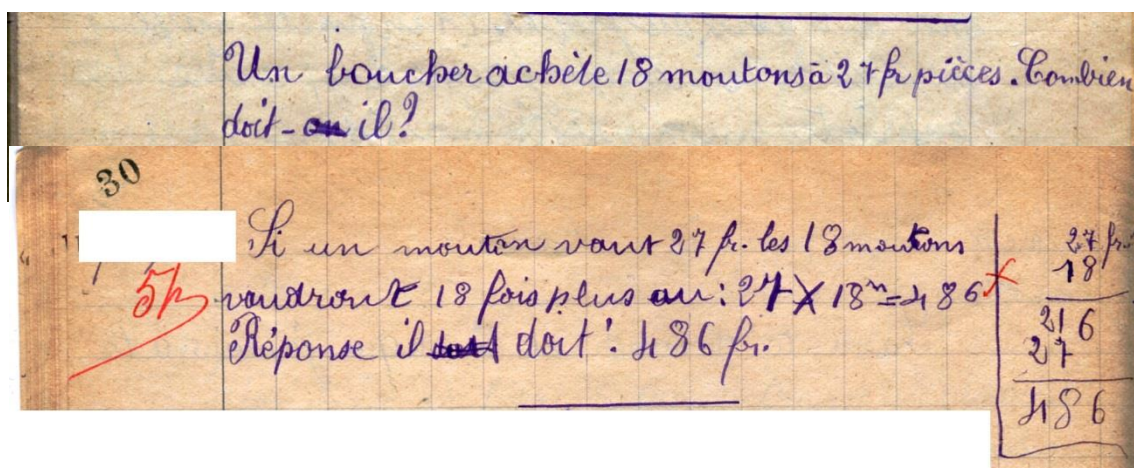 Un boucher achète 18 moutons à 27 fr pièces. Combien
doit-on il?
30
Si un mouton vaut 27 fr. les 18 moutons
vaudront 18 fois plus ou: 27 X 18 = 486
Réponse il doit: 486 fr.
27 fr.
18
216
27
486